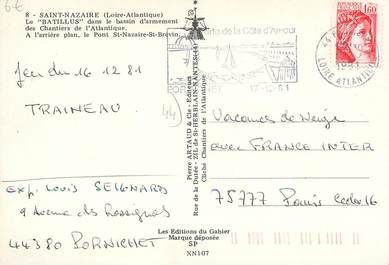 6€
8 - SAINT-NAZAIRE (Loire-Atlantique)
Le "BATILLUS" dans le bassin d'armement
des Chantiers de l'Atlantique.
A l'arrière plan, le Pont St-Nazaire-St-Brévin.
Jeu du 16 12 81
TRAINEAU
44
exp. Louis SEIGNARD
9 Avenue des Rossignols
44380 PORNICHET
Pierre ARTAUD & Cie - Editeurs
Rue de la Durée - ZIL de St-HERBLAIN-NANTES
Cliché Chantiers de l'Atlantique
de la Côte d'Amour
17-12-81
1,60
LOIRE ATLANTIQUE
Vacances de Neige
avec FRANCE INTER
75777 Paris Cedex 16
Les Editions du Gabier
Marque déposée
SP
XN107